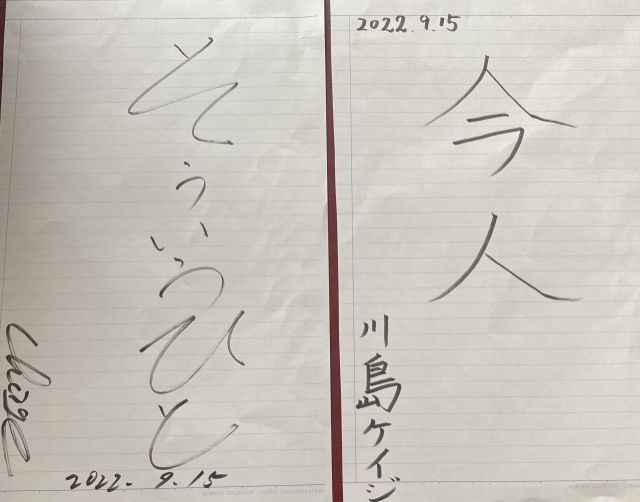 そういうひと
Chage
2022. 9. 15
2022. 9. 15
今人
川島ケイジ